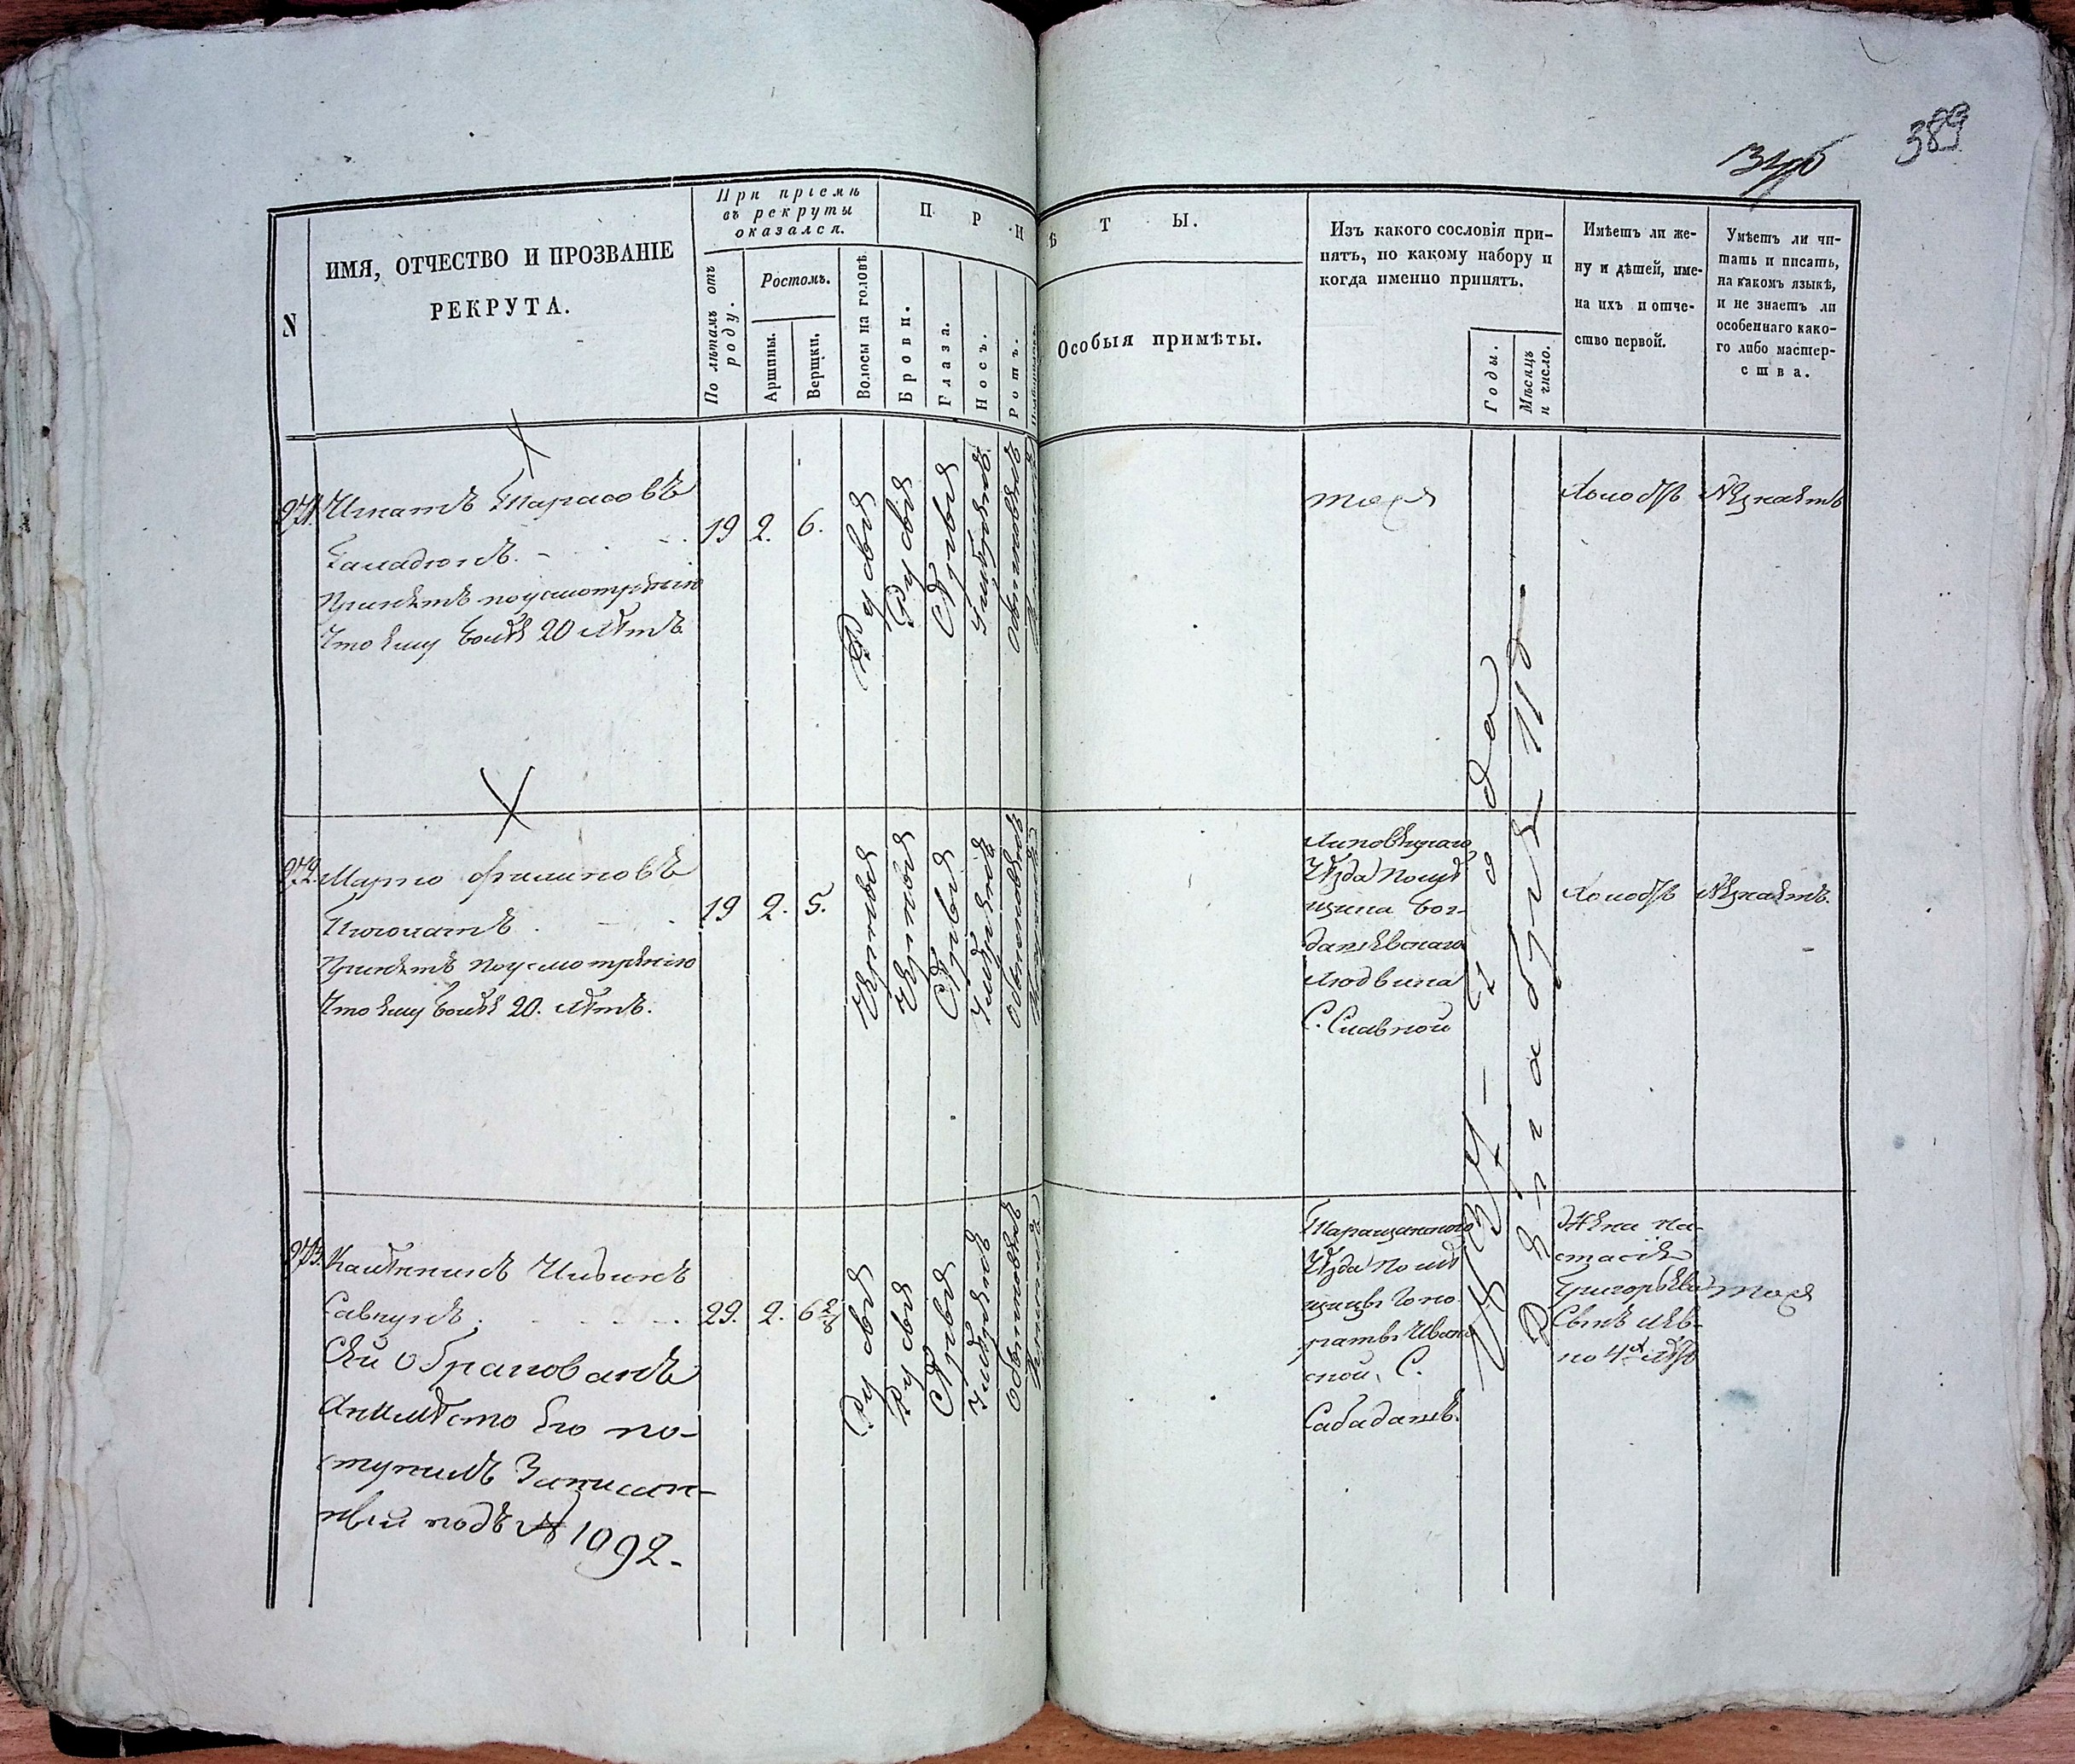 389
N
ИМЯ, ОТЧЕСТВО И ПРОЗВАНІЕ
РЕКРУТА.
При пріемѣ
въ рекруты
оказался.
По лѣтамъ отъ
роду.
Ростомъ.
Аршины.
Вершки.
П Р И
Волосы на головѣ.
Брови.
Глаза.
Носъ.
Ротъ.
Ѣ Т Ы.
Особыя примѣты.
Изъ какого сословія при-
нятъ, по какому набору и
когда именно принятъ.
Годы.
Мѣсяцъ
и число.
Имѣетъ ли же-
ну и дѣтей, име-
на ихъ и отче-
ство первой.
Умѣетъ ли чи-
тать и писать,
на какомъ языкѣ,
и не знаетъ ли
особеннаго како-
го либо мастер-
ства.
971.
Игнатъ Тарасовъ
Принятъ по усмотренію
что ему болѣе 20 лѣтъ.
19
2.
6.
Русыя
Русыя
Сѣрыя
Умѣренъ
Обыкновенъ
Холостъ
Незнаетъ
972.
Марко Филиповъ
Принятъ по усмотренію
что ему болѣе 20. лѣтъ.
19
2.
5.
Черныя
Черныя
Сѣрыя
Умѣренъ
Обыкновенъ
Липовецкаго
Уѣзда Помѣ
щика Бог-
дашевскаго
Людвика
С. Славной
Холостъ
Незнаетъ.
973.
Калѣникъ Ивановъ
Савчукъ.
Сей обракованъ
а вмѣсто его по-
ступилъ Записан-
ный подъ № 1092.
29.
2.
6 2/8
Русыя
Русыя
Сѣрыя
Умѣренъ
Обыкновенъ
Таращанскаго
Уѣзда Помѣ
щицы Гоно
раты Иванов
ской, С.
1834 – года
Декабря 11 д
Жена На-
стасія
Григорьева
Сынъ Лев-
ко 4х лѣтъ